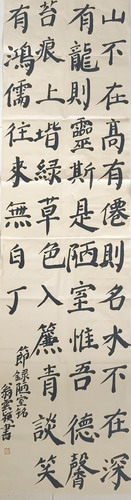 山不在高有僊則名水不在深
有龍則靈斯是陋室惟吾德馨
苔痕上堦緑草色入簾青談笑
有鴻儒往來無白丁
節録陋室銘
翁雲書